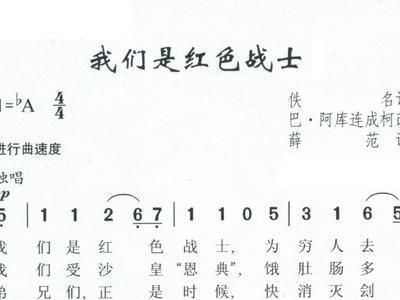 我们是红色战士
=♭A 4/4
佚 名
巴·阿库连成柯
薛 范
进行曲速度
独唱
p
5 | 1 1 2 6 7 | 1 1 0 5 3 1 6 5
我 们 是 红 色 战 士, 为 穷 人 去
我 们 受 沙 皇 “恩 典”, 饿 肚 肠 多
弟 兄 们, 正 是 时 候, 快 消 灭 剑